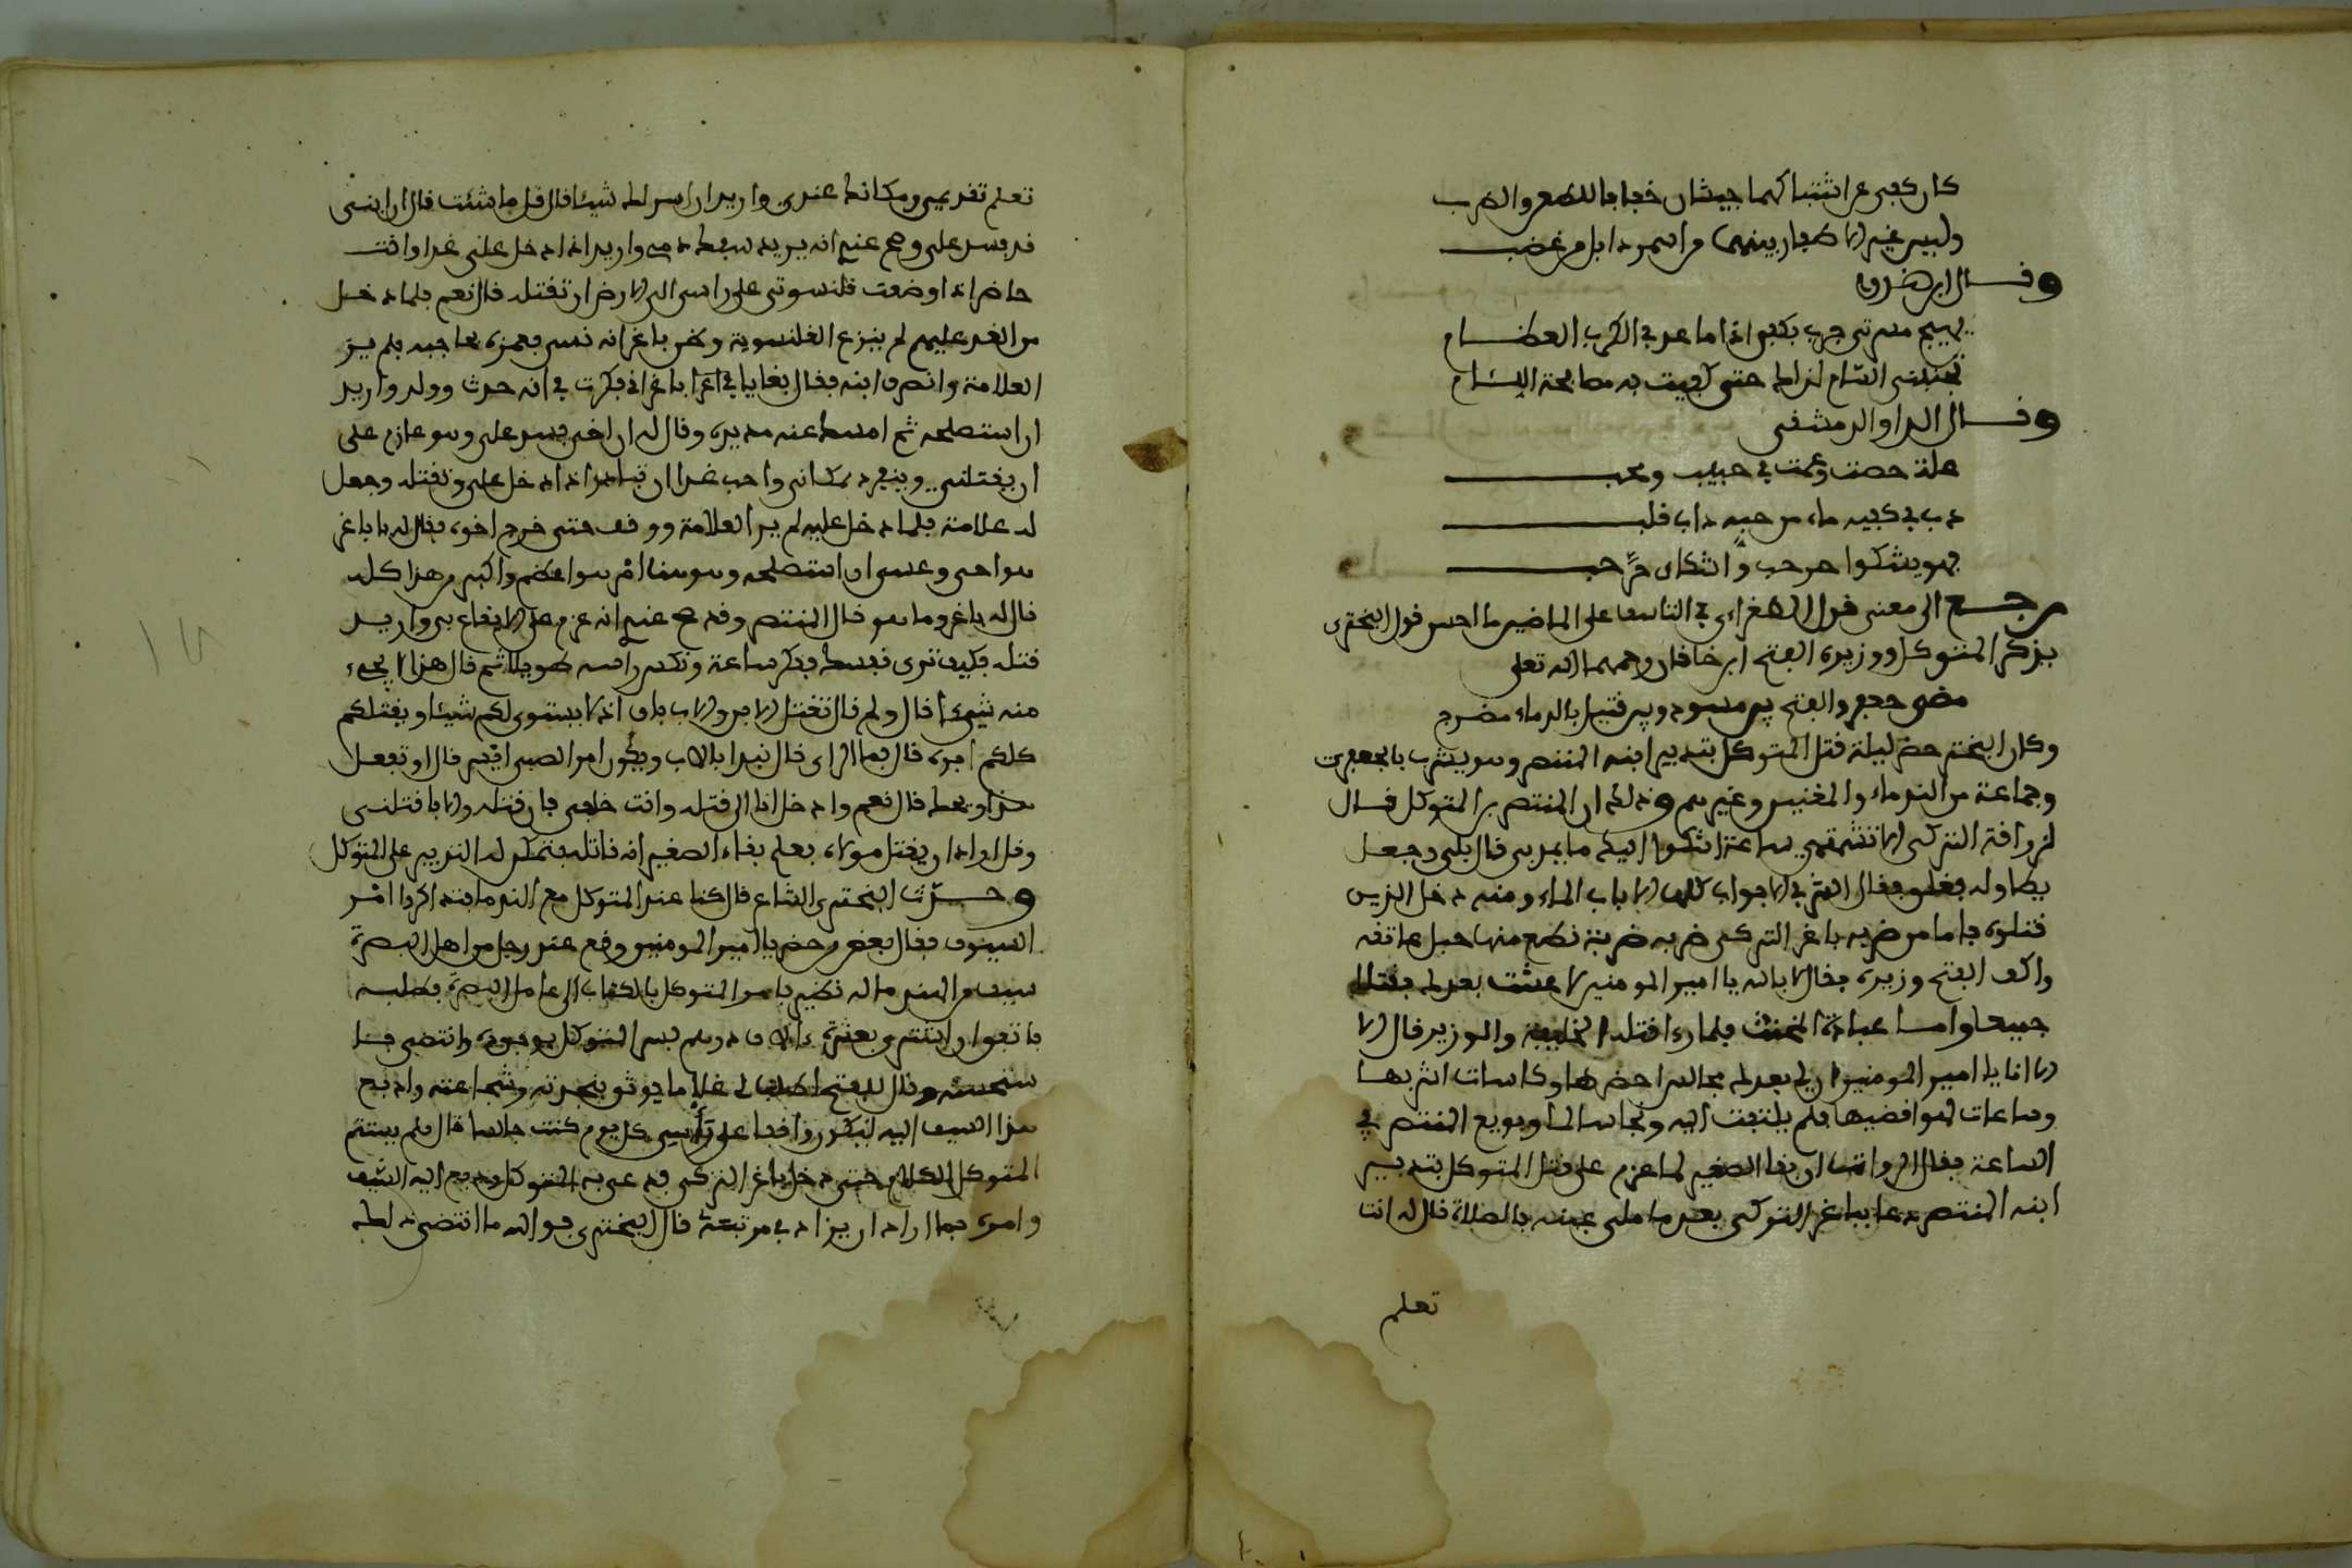 كان كفي عراشتباكهما جيشان خفا بالطعن والضرب
وليس غير الاصفار بينهما من اسمر ذابل ومن عضب
وقال ابن
يهيج مسرتي جرب بكفي اذا ما عد في الكرب العظام
تجنبني اللئام لذاك حتى كفيت به مصافحة اللئام
وقال الداوالدمشقي
علة خصت وعمت في حبيب ومحب
دب في كفيه ماء من حبه داب قلب
فهو يشكوا حر حب واشتكائ حر حب
رجع الى معنى قول الطغراءي في التاسف على الماضين ما احسن قول البحتري
يذكر المتوكل ووزيره الفتح ابن خاقان رحمهما الله تعلى
مضى جعفر والفتح بين موسد وبين قتيل بالدماء مضرج
وكان البحتري حضر ليلة قتل المتوكل بتدبير ابنه المنتصر وهو يشرب بالجعفري
وجماعة من الندماء والمغنين وغيرهم وذلك ان المنتصر بن المتوكل قال
لزرافة التركي الا تشتهي ساعة اشكوا اليك ما يمر بي قال بلى وجعل
يطاوله فغلق بغا الشرابي الابواب كلها الا باب الماء ومنه دخل الذين
قتلوه فاما من ضربه باغر التركي ضربه ضربة قطع منها حبل عاتقه
واكب الفتح وزيره فقال لا بالله يا امير المومنين لا عشت بعدك فقتلا
جميعا واما عبادة المخنث فلما رءا قتلة الخليفة والوزير قال الا
الا انا يا امير المومنين ان لي بعدك مجالس احضرها وكاسات اشربها
وساعات لهو اقضيها فلم يلتفت اليه ونجا سالما وبويع المنتصر في
الساعة يقال الرواة ان بغا الصغير لما عزم على قتل المتوكل بتدبير
ابنه المنتصر دعا بباغر التركي بعد ما ملى عينه بالصلاة قال له انت
تعلم
تعلم تقديمي ومكانك عندي واريد ان اسر لك شيئا قال قل ما شئت قال ان ابني
قد فسد علي وصح عندي انه يريد سفك دمي واريد اذا دخل علي غدا وانت
حاضر اذا وضعت قلنسوتي على راسي الى الارض ان تقتله قال نعم فلما دخل
من الغد عليهم لم ينزع القلنسوية وظن باغر انه نسي فغمزه بحاجبه فلم ير
العلامة وانصرف ابنه فقال بغا يا باغر اني فكرت في انه حدث وولد واريد
ان استصلحه ثم امسك عنه مديدة وقال له ان اخي فسد علي وهو عازم على
ان يقتلني وينفرد بمكاني واحب غدا ان تبادر اذا دخل علي وتقتله وجعل
له علامة فلما دخل عليه لم ير العلامة ووقف حتى خرج اخوه فقال له يا باغر
هو اخي وعسى ان استصلحه وهو هنا امر هو اعظم واكبر من هذا كله
قال له باغر وما هو قال المنتصر وقد صح عندي انه عزم على الايقاع بي واريد
قتله فكيف ترى نفسك ففكر ساعة ونكس راسه طويلا ثم قال هذا لا يجيء
منه شيء قال ولم قال تقتل الابن والاب باق اذا لا يستوي لكم شيئا ويقتلكم
كلكم ابوه قال فما الراي قال نبدا بالاب ويكون امر الصبي ايسر قال او تفعل
هذا ويحك قال نعم وادخل انا الى قتله وانت خلفي فان قتلته والا فاقتلني
وقل اراد ان يقتل مولاه فعلم بغاء الصغير انه قاتله فتمكن له التدبير على المتوكل
وحدث البحتري الشاعر قال كنا عند المتوكل مع الندما فتذاكروا امر
السيوف فقال بعض من حضر يا امير المومنين وقع عند رجل من اهل البصرة
سيف من الهند ما له نظير فامر المتوكل بالكتاب الى عامل البصرة فطلبه
فاتفق ان اشتري بعشرة ءالاف درهم فسر المتوكل بوجوده وانتضى
ستحسنه وقال للفتح اطلب لي غلاما يوثق بنجدته وشجاعته وادفع
هذا السيف اليه ليكون واقفا على راسي كل يوم كنت جالسا قال فلم يستتم
المتوكل الكلام حتى دخل باغر التركي فدعى به المتوكل ودفع اليه السيف
وامره بما اراد ان يزاد في مرتبته قال البحتري فوالله ما انتضى ذلك